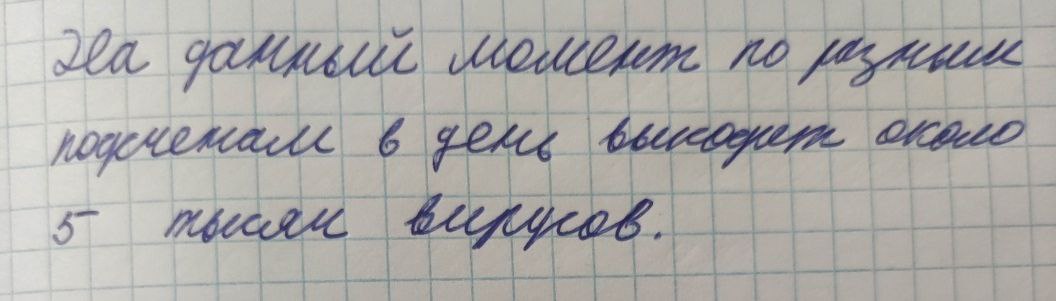 На данный момент по разным
подсчетам в день выходит около
5 тысяч вирусов.